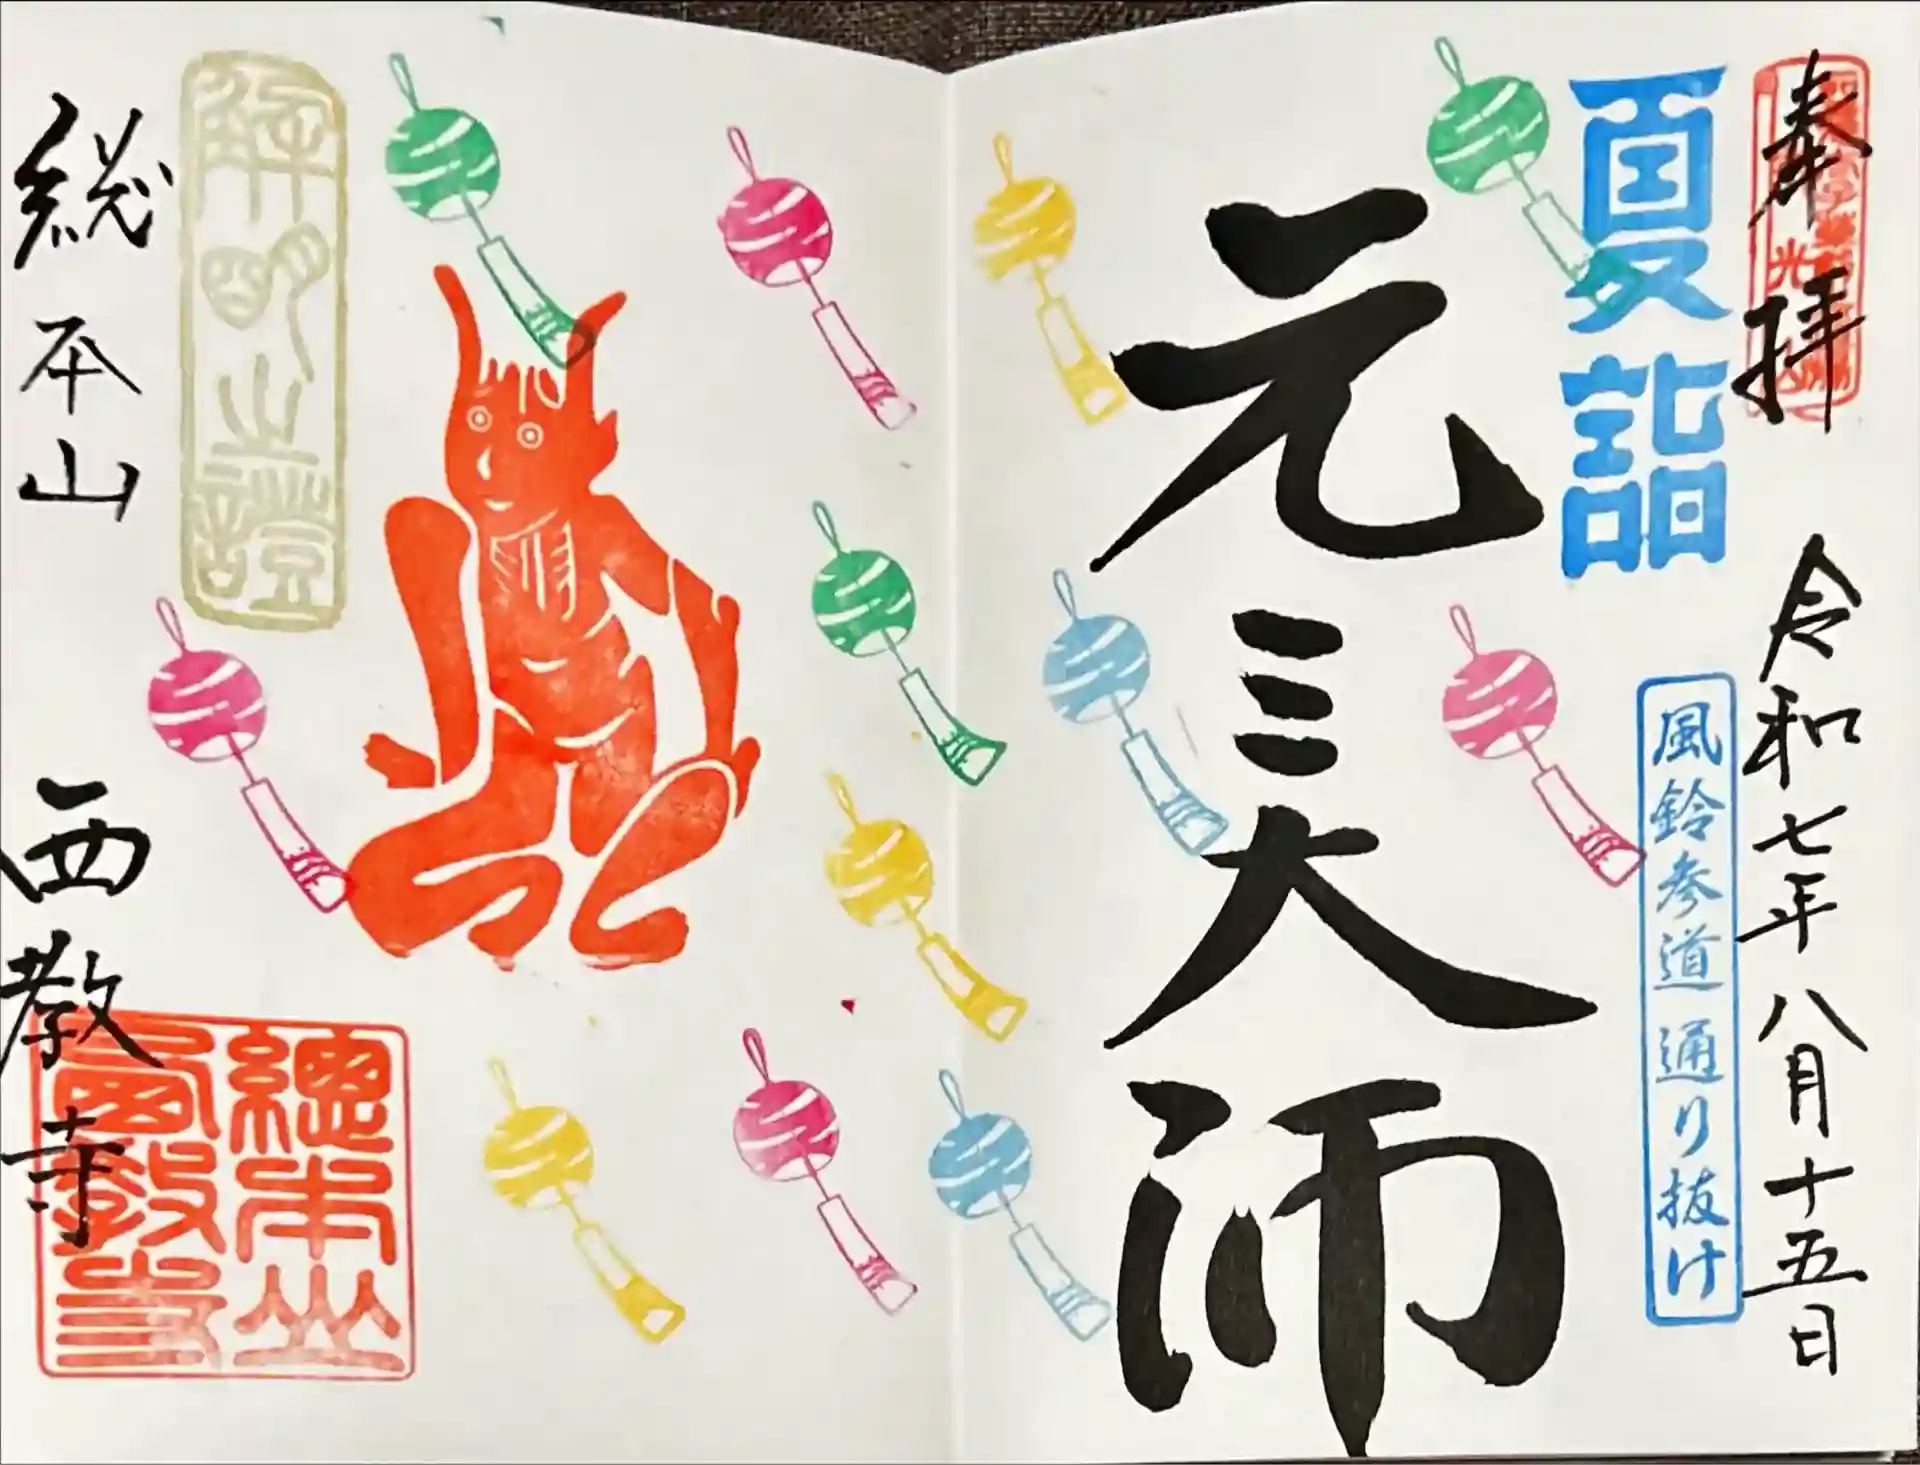 奉拝
令和七年八月十五日
夏詣
風鈴参道 通り抜け
元三大師
總本山
西教寺
総本山
西教寺